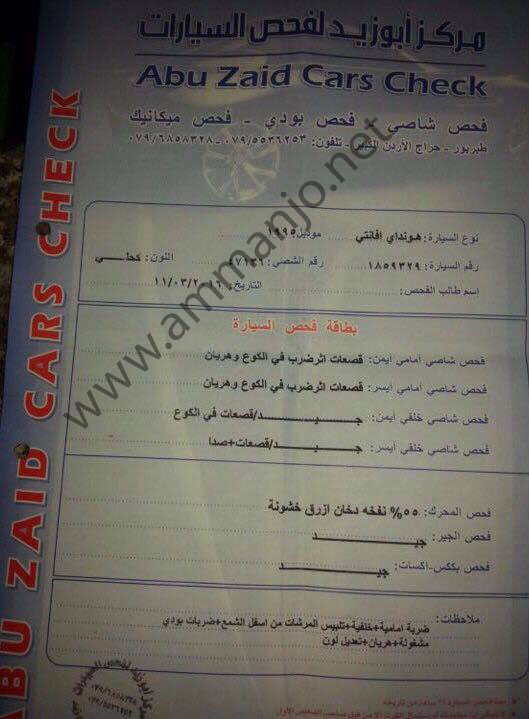 مركز أبوزيد لفحص السيارات
Abu Zaid Cars Check
فحص شاصي - فحص بودي - فحص ميكانيك
طبربور - حراج الأردن الكبير - تلفون: ٠٧٩/٥٥٣٦٢٥٣ - ٠٧٩/٦٨٥٨٣٢٨
نوع السيارة: هونداي افانتي موديل ١٩٩٥
رقم السيارة: ١٨٥٩٣٢٩ رقم الشصي: ٤٧١٢٦ اللون: كحلي
اسم طالب الفحص: التاريخ: ١١/٠٣/٢٠١٦
بطاقة فحص السيارة
فحص شاصي أمامي أيمن: قصعات اثرضرب في الكوع وهريان
فحص شاصي أمامي أيسر: قصعات اثرضرب في الكوع وهريان
فحص شاصي خلفي أيمن: جيد/قصعات في الكوع
فحص شاصي خلفي أيسر: جيد/قصعات+صدا
فحص المحرك: ٥٥% نفخه دخان ازرق خشونة
فحص الجير: جيد
فحص بكس-اكسات: جيد
ملاحظات: ضربة امامية+خلفية+تلبيس المرشات من اسفل الشمع+ضربات بودي
مشغولة+هريان+تعديل لون
ABU ZAID CARS CHECK
www.ammanjo.net
مركز أبو زيد لفحص السيارات
٠٧٩/٦٨٥٨٣٢٨
٠٧٩/٥٥٣٦٢٥٣